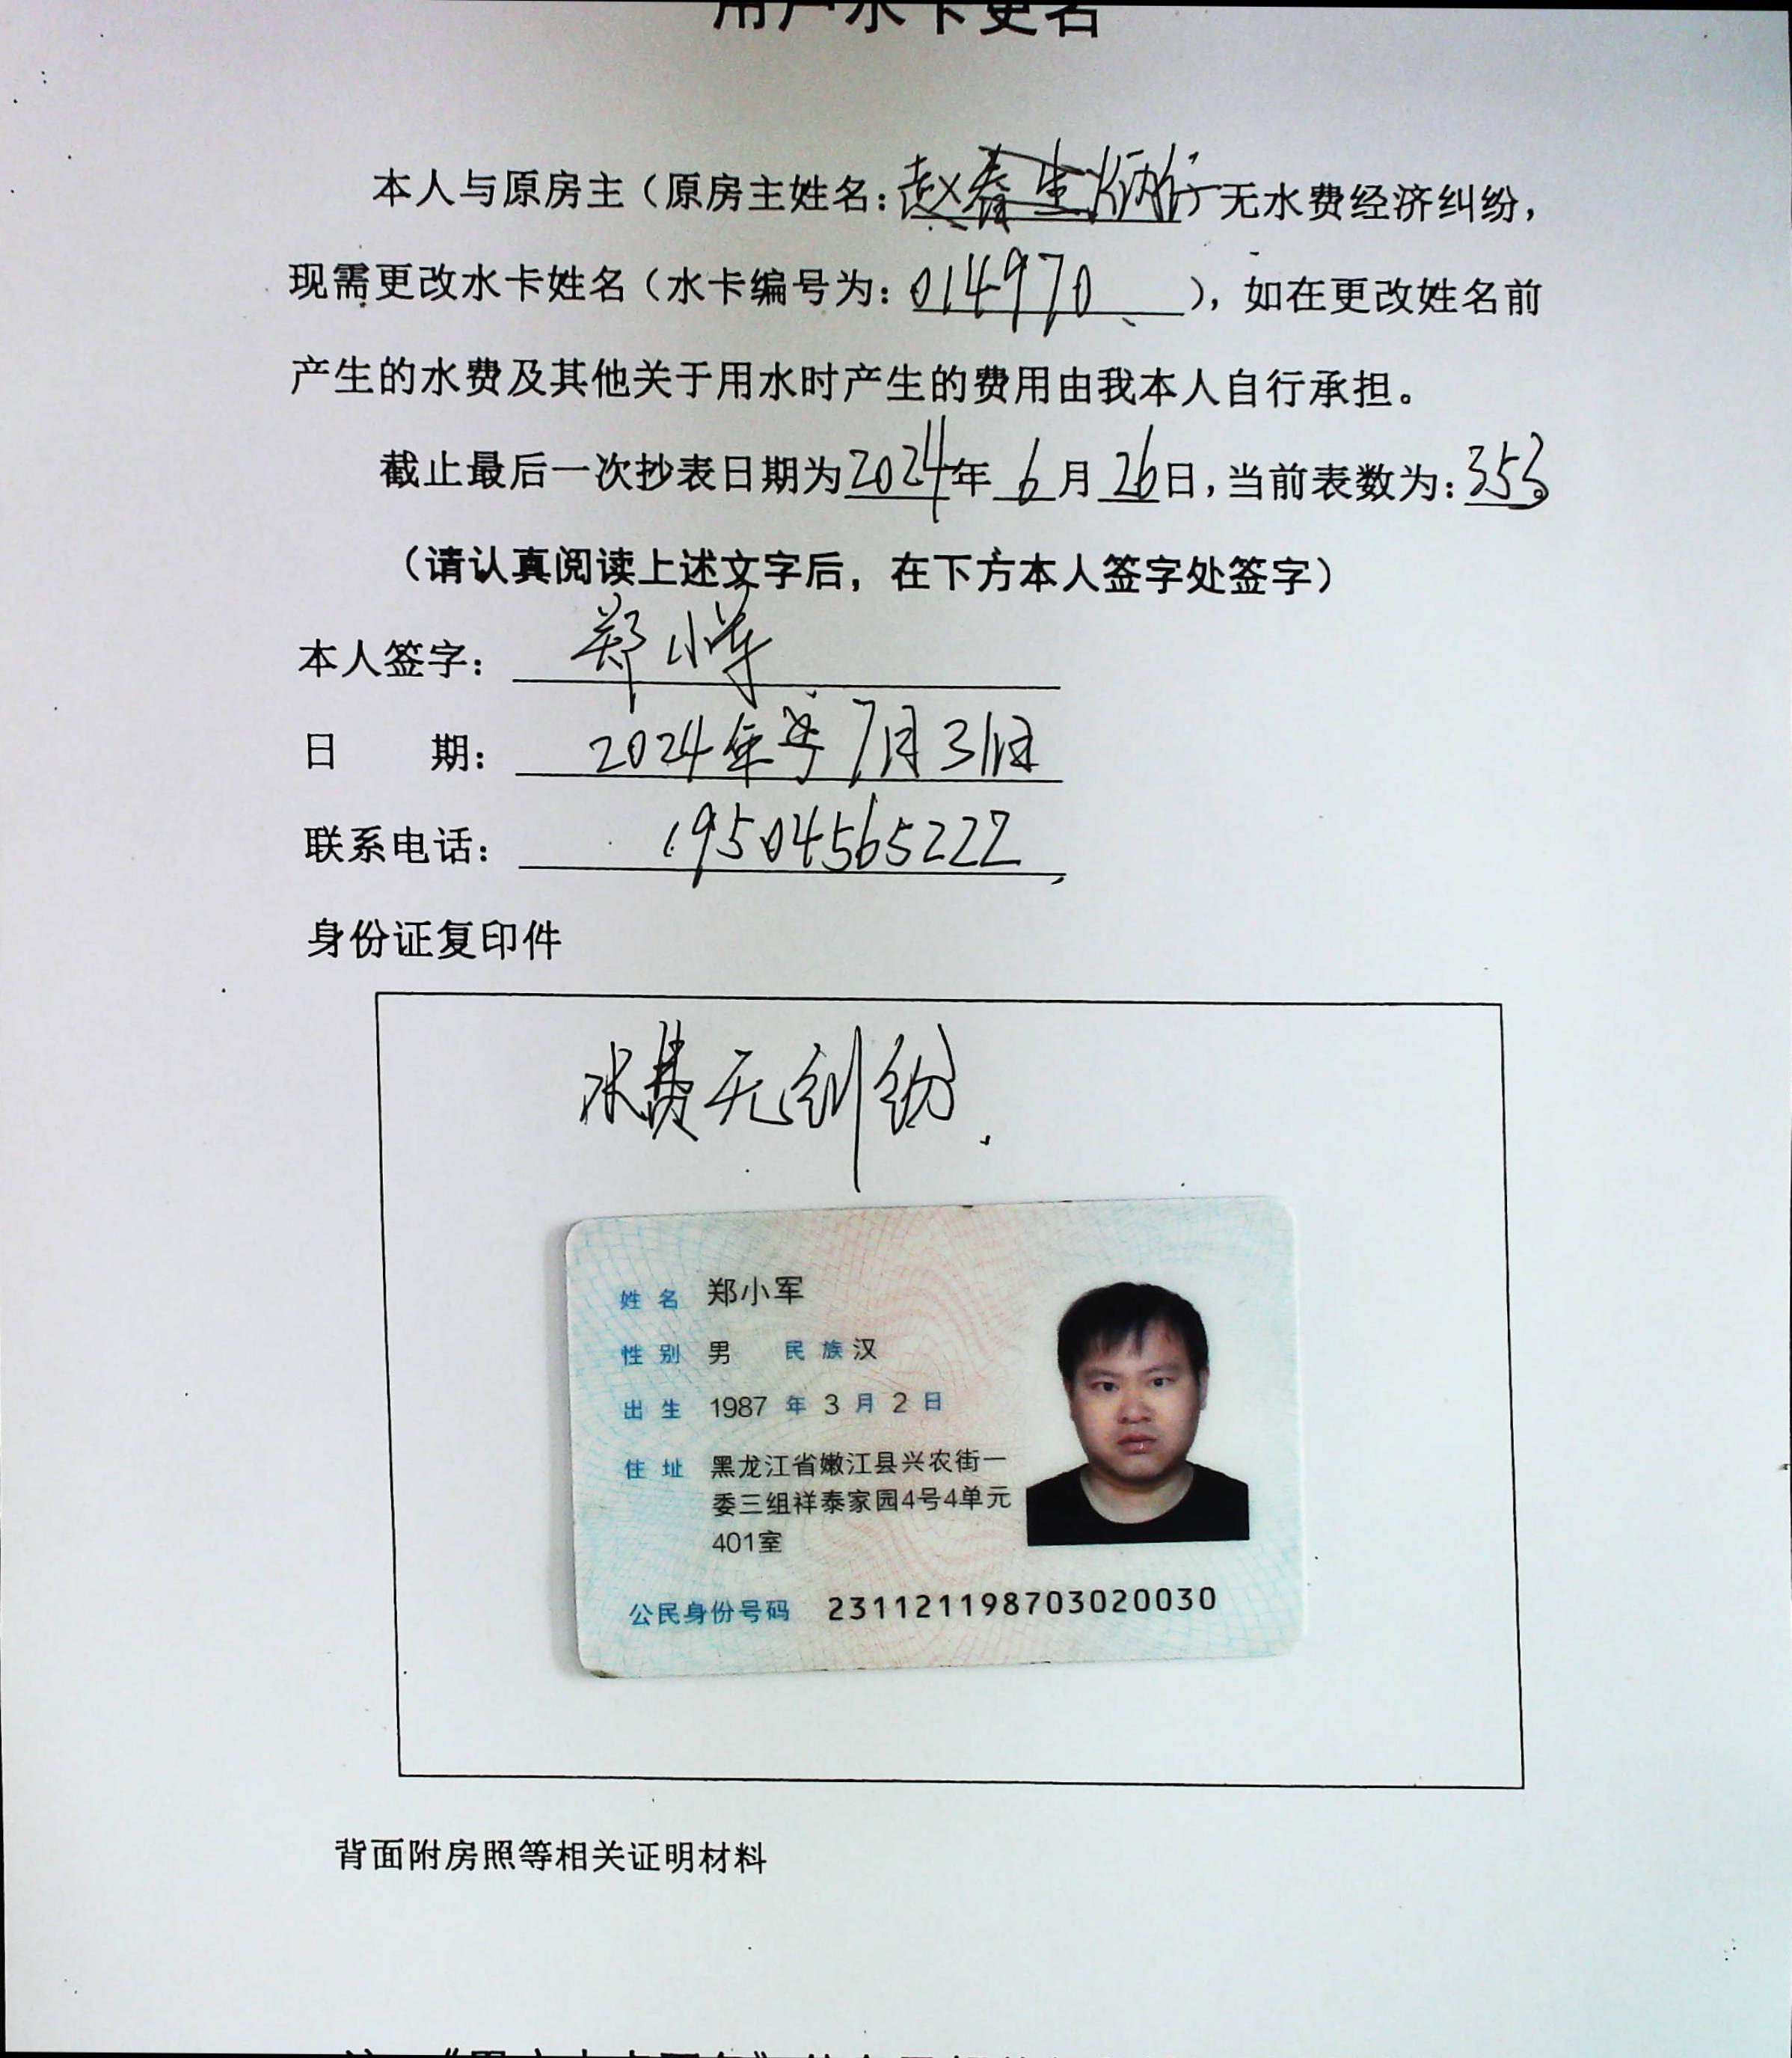 用户水卡更名
本人与原房主（原房主姓名：赵春生 无水费经济纠纷，
现需更改水卡姓名（水卡编号为：014970），如在更改姓名前
产生的水费及其他关于用水时产生的费用由我本人自行承担。
截止最后一次抄表日期为2024年6月26日，当前表数为：353
（请认真阅读上述文字后，在下方本人签字处签字）
本人签字：郑小军
日 期：2024年 7月31日
联系电话：19504565222
身份证复印件
水费无纠纷.
姓名 郑小军
性别 男 民族 汉
出生 1987 年 3 月 2 日
住址 黑龙江省嫩江县兴农街一
委三组祥泰家园4号4单元
401室
公民身份号码 231121198703020030
背面附房照等相关证明材料